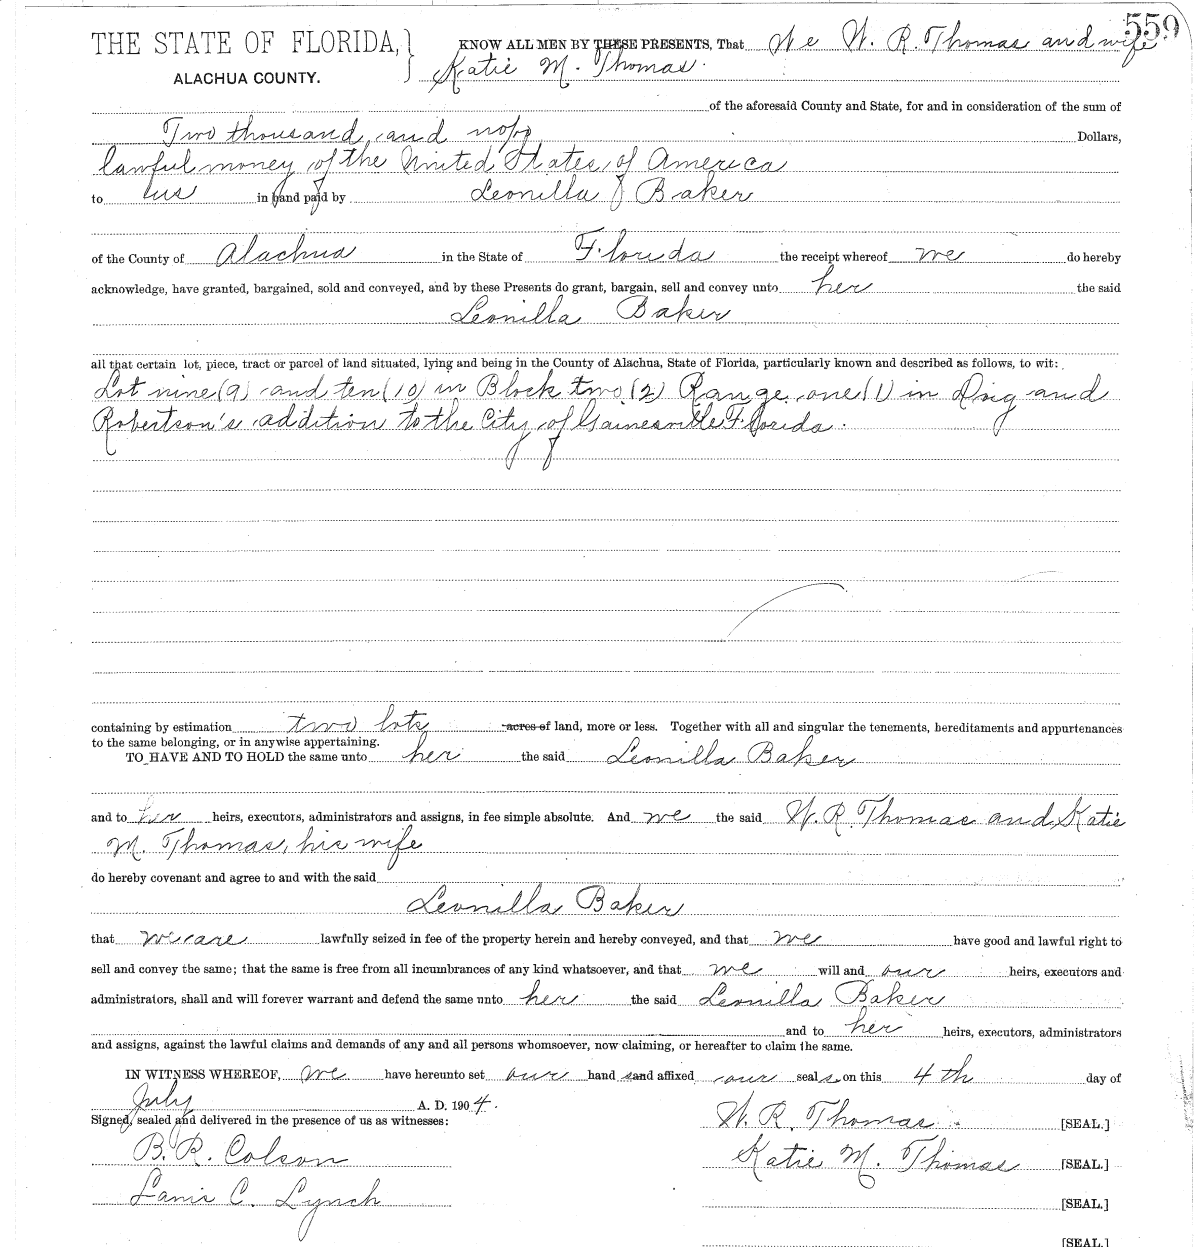 559
THE STATE OF FLORIDA, } KNOW ALL MEN BY THESE PRESENTS, That We W. R. Thomas and wife
ALACHUA COUNTY. Katie M. Thomas.
of the aforesaid County and State, for and in consideration of the sum of
Two thousand and no/00 Dollars,
lawful money of the United States of America
to us in hand paid by Leonilla J Baker
of the County of Alachua in the State of Florida the receipt whereof we do hereby
acknowledge, have granted, bargained, sold and conveyed, and by these Presents do grant, bargain, sell and convey unto her the said
Leonilla Baker
all that certain lot, piece, tract or parcel of land situated, lying and being in the County of Alachua, State of Florida, particularly known and described as follows, to wit:
Lot nine (9) and ten (10) in Block two (2) Range one (1) in Doig and
Robertson's addition to the City of Gainesville Florida.
containing by estimation two lots acres of land, more or less. Together with all and singular the tenements, hereditaments and appurtenances
to the same belonging, or in anywise appertaining.
TO HAVE AND TO HOLD the same unto her the said Leonilla Baker
and to her heirs, executors, administrators and assigns, in fee simple absolute. And we the said W. R. Thomas and Katie
M. Thomas, his wife
do hereby covenant and agree to and with the said
Leonilla Baker
that we are lawfully seized in fee of the property herein and hereby conveyed, and that we have good and lawful right to
sell and convey the same; that the same is free from all incumbrances of any kind whatsoever, and that we will and our heirs, executors and
administrators, shall and will forever warrant and defend the same unto her the said Leonilla Baker
and to her heirs, executors, administrators
and assigns, against the lawful claims and demands of any and all persons whomsoever, now claiming, or hereafter to claim the same.
IN WITNESS WHEREOF, we have hereunto set our hand s and affixed our seal s on this 4th day of
July A. D. 1904.
Signed, sealed and delivered in the presence of us as witnesses: W. R. Thomas [SEAL.]
B. R. Colson Katie M. Thomas [SEAL.]
Lanis C. Lynch [SEAL.]
[SEAL.]